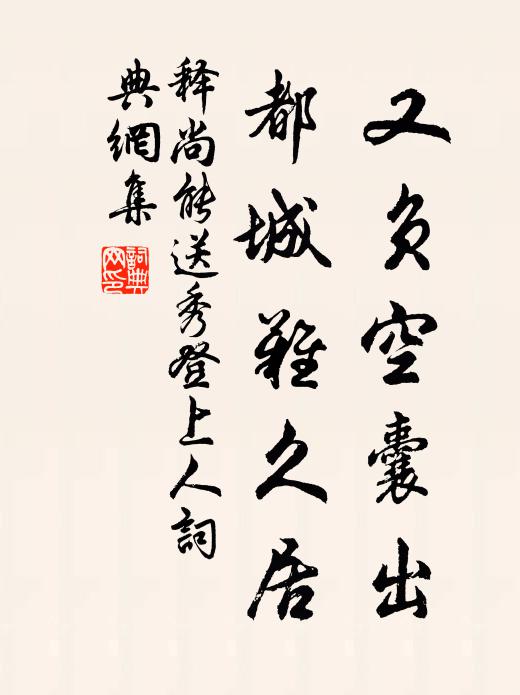 又负空囊出
都城难久居
释尚能送秀登上人詞
典網集
詞典網印